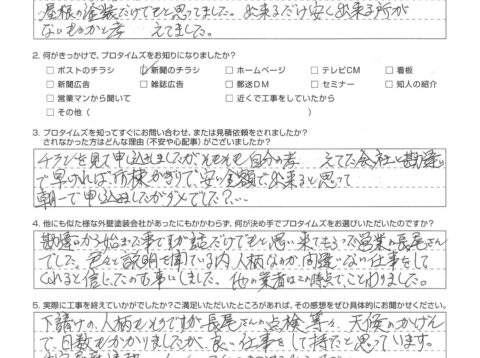 屋根の塗装だけでもと思ってました。出来るだけ安く出来る所が
ないものかと考 えてました。
2. 何がきっかけで、プロタイムズをお知りになりましたか?
□ ポストのチラシ ☑ 新聞のチラシ □ ホームページ □ テレビCM □ 看板
□ 新聞広告 □ 雑誌広告 □ 郵送DM □ セミナー □ 知人の紹介
□ 営業マンから聞いて □ 近くで工事をしていたから
□ その他( )
3. プロタイムズを知ってすぐにお問い合わせ、または見積依頼をされましたか?
されなかった方はどんな理由(不安や心配事)がございましたか?
チラシを見て申込ましたがそもそも自分の考 えてた会社と勘違い
で早ければ 棟かぎりで、安い金額で出来ると思って
朝一で申込ましたがダメでした?…
4. 他にも似た様な外壁塗装会社があったにもかかわらず、何が決め手でプロタイムズをお選びいただいたのですか?
勘違いから始まった事ですが話だけでもと思い来てもらった営業の長尾さん
でした。色々と説明を聞いている内人柄なのか間違いない仕事をして
くれると信じたので お 事にしました。他の業者はこの時点で、ことわりました。
5. 実際に工事を終えていかがでしたか?ご満足いただいたところがあれば、その感想をぜひ具体的にお聞かせください。
下請けの、人柄もそうですが長尾さんの点検、等々、天候のかげん
で、日数もかかりましたが、良い仕事をして持だと思っています。